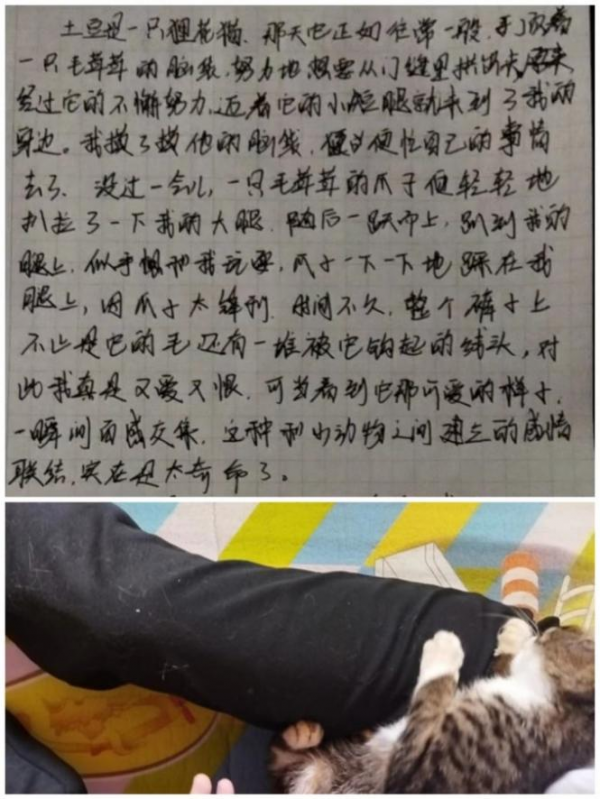 土豆是一只狸花猫，那天它正如往常一般，
一只毛茸茸的脑袋，努力地想要从门缝里挤出来，
经过它的不懈努力，迈着它的小短腿就来到了我的
身边。我撒了撒他的脑袋，便忙自己的事情
去了。没过一会儿，一只毛茸茸的爪子便轻轻地
扒拉了一下我的大腿，随后一跃而上，趴到我的
腿上，似乎想和我玩耍，爪子一下一下地踩在我
腿上，因爪子太锋利，时间不久，整个裤子上
不止是它的毛还有一堆被它钩起的线头，对
此我真是又爱又恨，可当看到它那可爱的样子，
一瞬间百感交集，这种和小动物之间建立的感情
联结，实在是太奇命了。